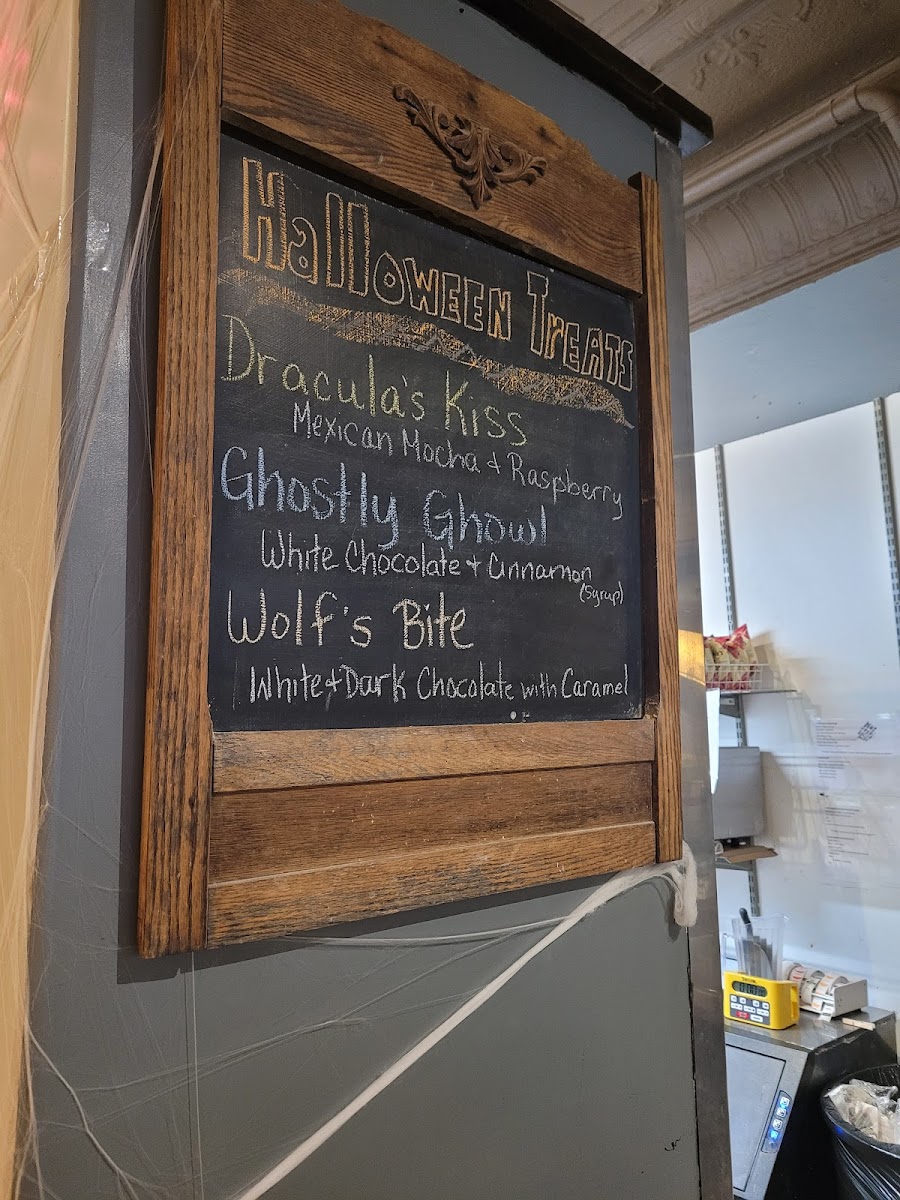 Halloween Treats
Dracula's Kiss
Mexican Mocha + Raspberry
Ghostly Ghowl
White Chocolate + Cinnamon
(Syrup)
Wolf's Bite
White + Dark Chocolate with Caramel